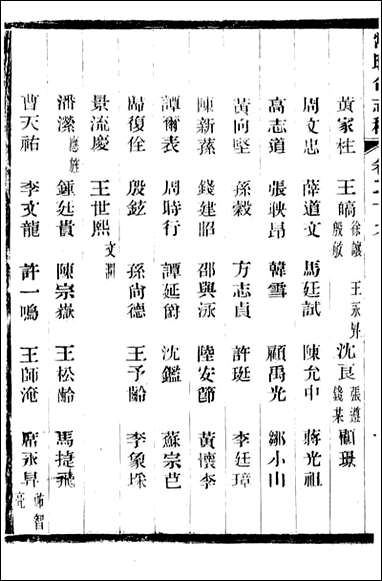 黃家柱 王皜 徐鑲 殷敏 王永昇 沈良 張遵 錢某 顧璟
周文忠 薛道文 馬廷試 陳允中 蔣光祖
高志道 張映昂 韓雪 顧禹光 鄒小山
黃向堅 孫穀 方志貞 許珽 李廷璋
陳新蓀 錢建昭 邵興泳 陸安節 黃瓌李
譚爾表 周時行 譚延爵 沈鑑 蘇宗芑
歸復佺 殷鉉 孫尚德 王予齡 李象埰
景流慶 王世熙 文淵
潘潆 應旌 鍾廷貴 陳宗嶽 王松齡 馬捷飛
曹天祐 李文龍 許一鳴 王師淹 席永昇 亮